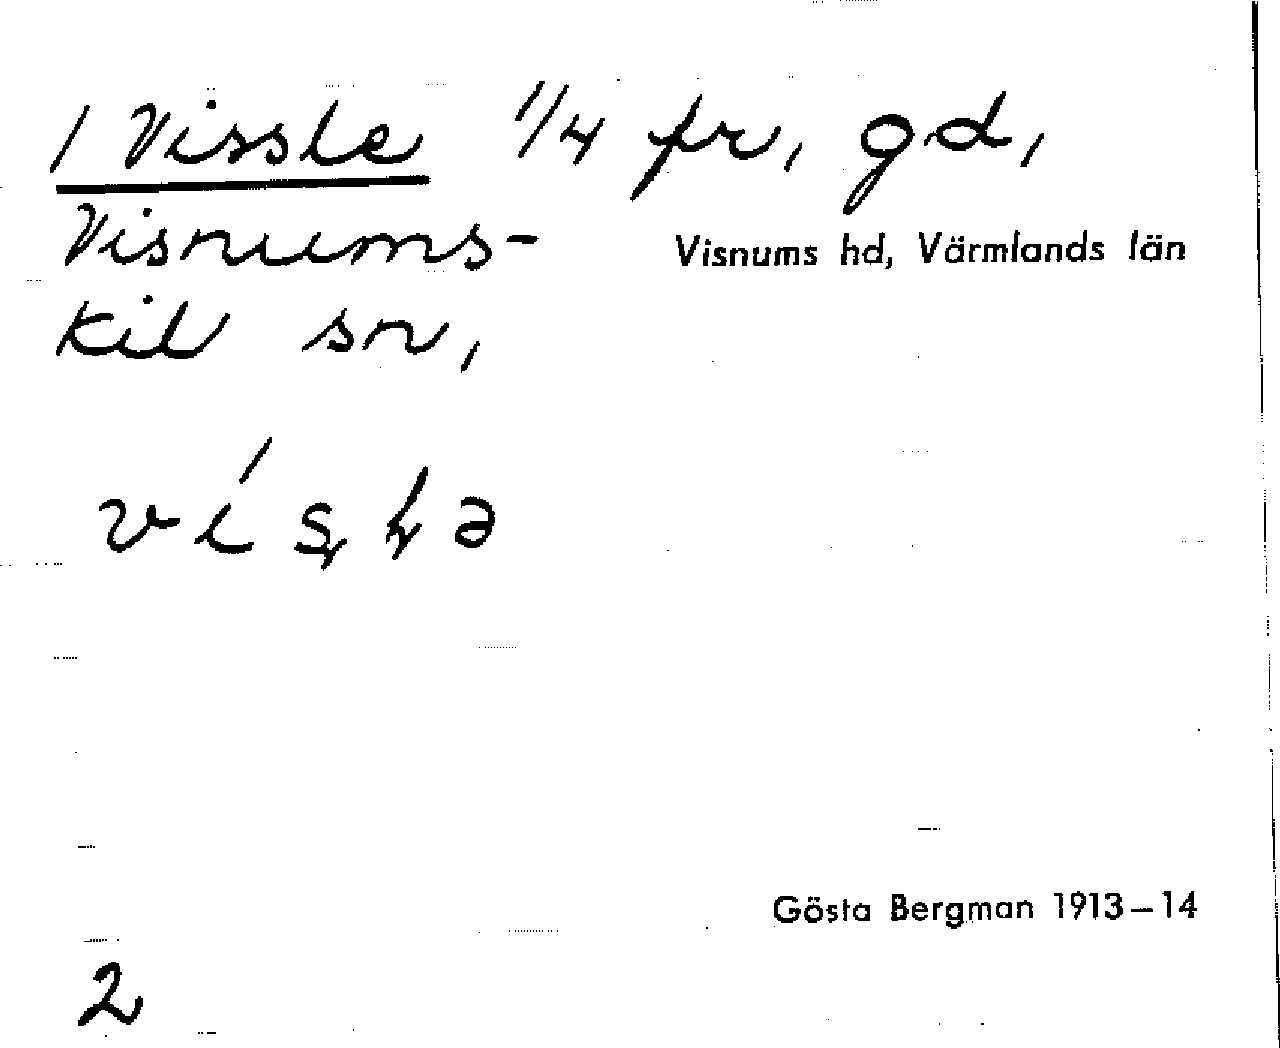 / Vissle 1/4 fr, gd,
Visnums-
Visnums hd, Värmlands län
kil sn,
Gösta Bergman 1913–14
2